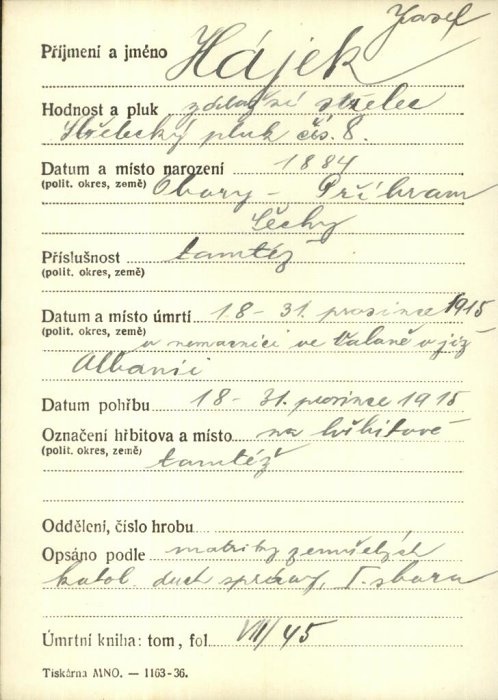 Josef
Příjmení a jméno Hájek
Hodnost a pluk záložní střelec
Střelecký pluk čís. 8.
Datum a místo narození 1884
(polit. okres, země) Obory - Příbram
Čechy
Příslušnost tamtéž
(polit. okres, země)
Datum a místo úmrtí 18 - 31. prosince 1915
(polit. okres, země) v nemocnici ve Valoně v již
Albanii
Datum pohřbu 18 - 31. prosince 1915
Označení hřbitova a místo na hřbitově
(polit. okres, země) tamtéž
Oddělení, číslo hrobu
Opsáno podle matriky zemřelých
katol. duch správy, I. sboru
Úmrtní kniha: tom, fol. VII/45
Tiskárna MNO. — 1163-36.